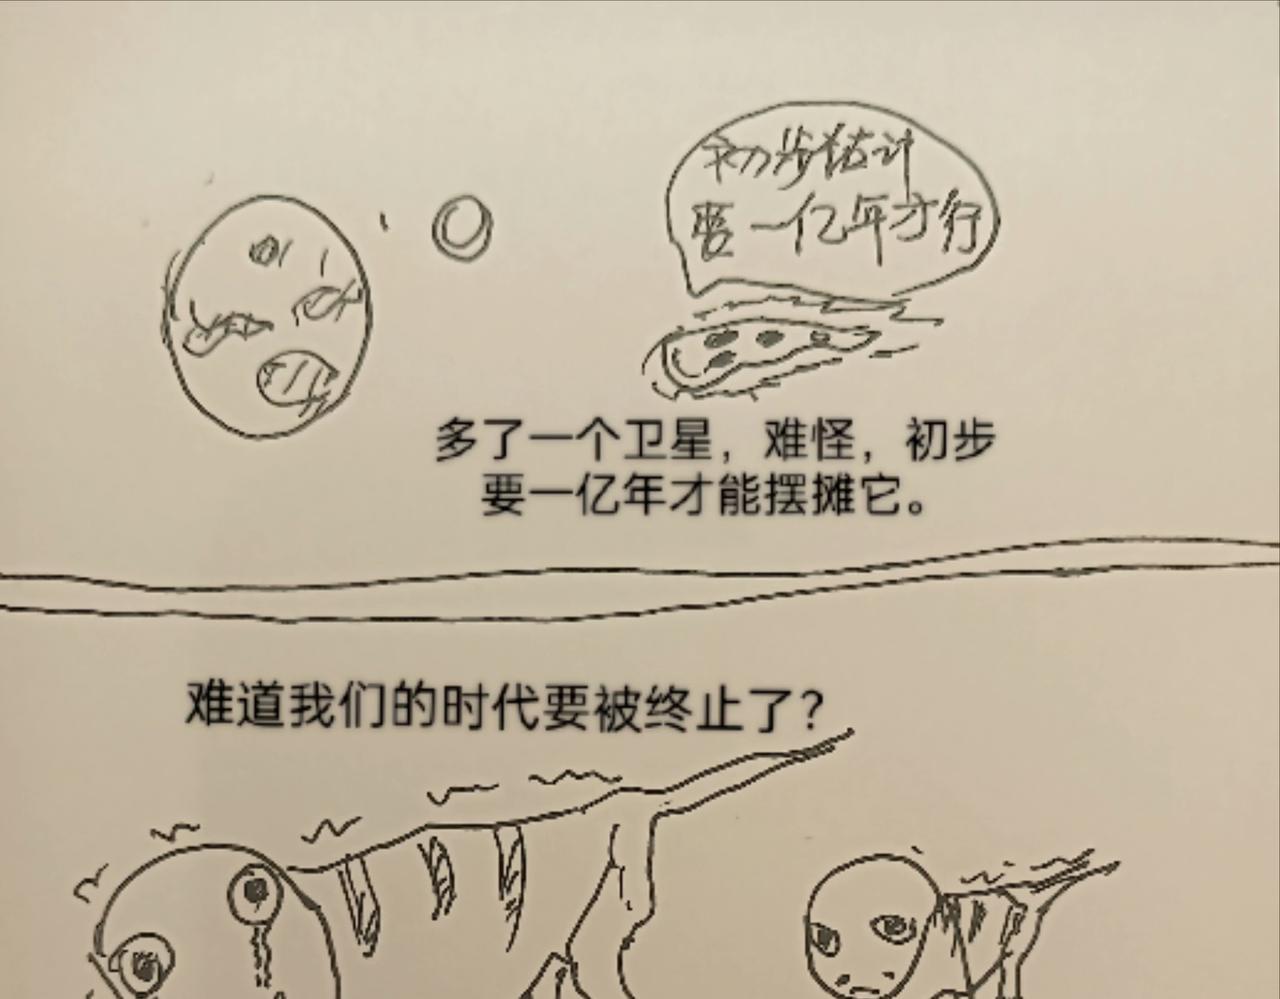 初步估计
要一亿年才行
多了一个卫星，难怪，初步
要一亿年才能摆摊它。
难道我们的时代要被终止了？